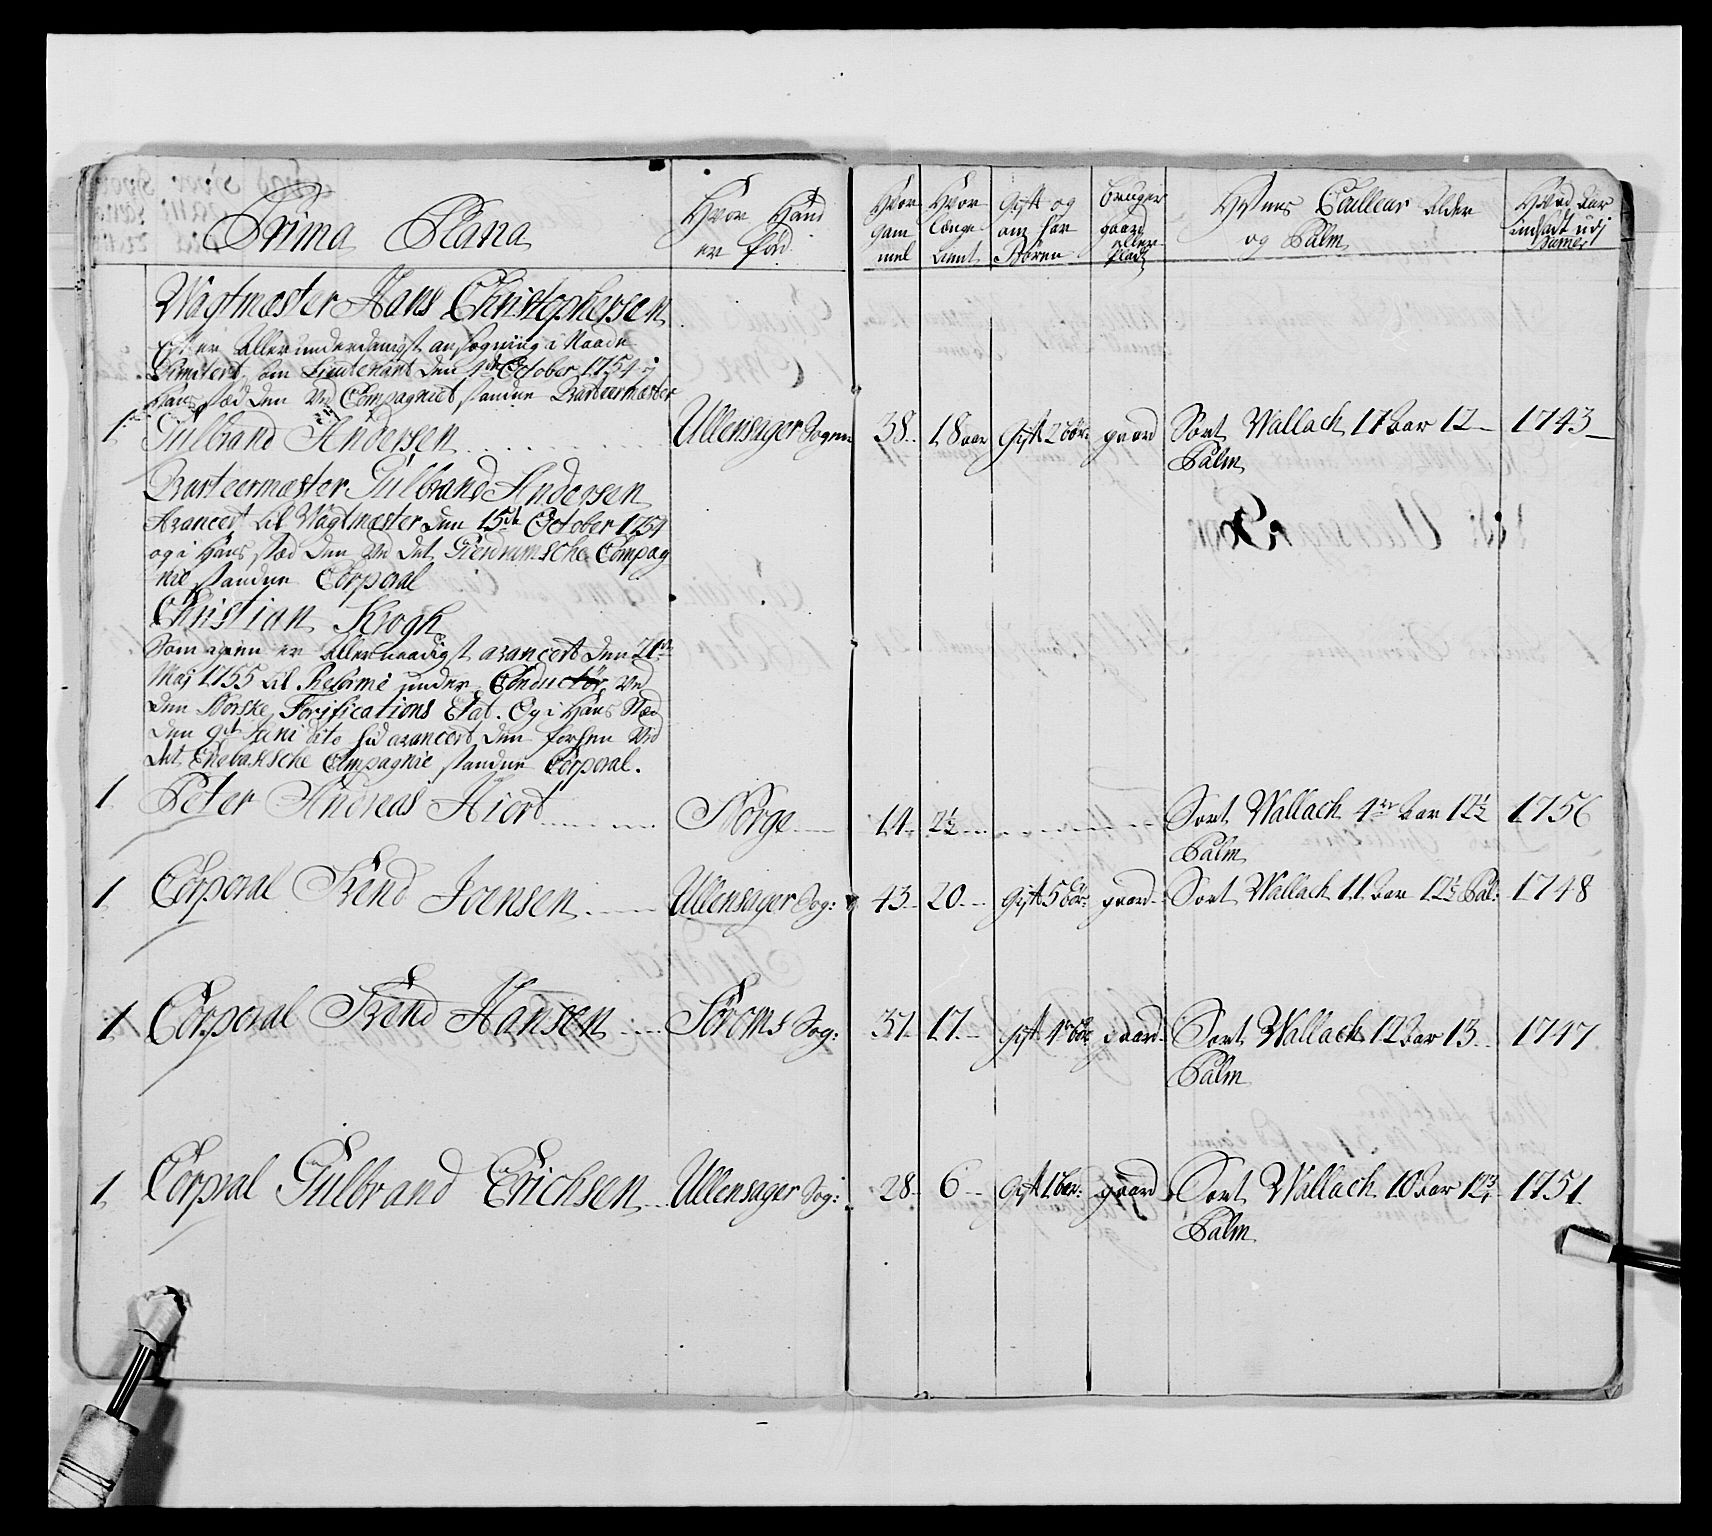 Prima Plana
Hvor Hand
er fød
Hvor
Gam
mel
Hvor
længe
tient
Gift og
om har
Børen
bruger
gaard
eller
Plads
Hestens Coulleur Alder
og Palm
Hvad Aar
indsadt udj
Numer
Vagtmester Hans Christophersen
Efter Allerunderdanigst ansøgning i Naade
Dimitert som Lieutenant den 1de October 1754 og i
Hans stæd den ved Compagniet standne Qvarteermester
1 Gulbrand Andersen Ullensager Sogen 38 18 aar Gift 2 bør: gaard Sort Wallach 11 Aar 12 1743
Palm
Qvarteermester Gulbrand Andersen
Avancert til Vagtmester den 15de October 1754
og i Hans stæd den ved det Gierdrumsche Compag
nie standne Corporal
Christian Krogh
Som igien er Allernaadigst avancert den 21de
Maj 1755 til Reformé under Conducteur ved
den Norske Fortifications Etat. Og i Hans Stæd
den 9de Juni dito hid avancert den forhen ved
det Enebaksche Compagnie standne Corporal.
1 Peter Andreas Hiort Norge 14 2½ Sort Wallach 4re Aar 12½ 1756
Palm
1 Corporal Trond Joensen Ullensager Sog: 43 20 Gift 5 bør: gaard Sort Wallach 11 Aar 12½ Pal: 1748
1 Corporal Trond Hansen Søroms Sog: 37 17 Gift 4 bør gaard Sort Wallach 12 Aar 13 1747
Palm
1 Corporal Gulbrand Erichsen Ullensager Sog: 28 6 Gift 1 bør: gaard Sort Wallach 10 Aar 12¾ 1751
Palm